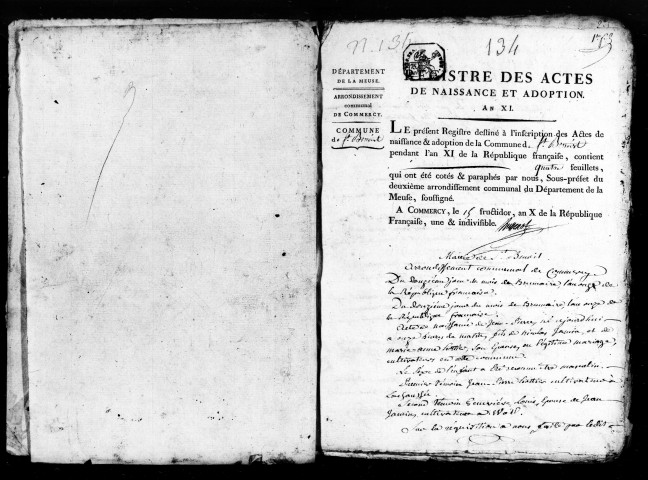 N. 134
134
DÉPARTEMENT
DE LA MEUSE.
ARRONDISSEMENT
communal
DE COMMERCY.
COMMUNE
de St Benoit
REGISTRE DES ACTES
DE NAISSANCE ET ADOPTION.
AN XI.
LE présent Registre destiné à l'inscription des Actes de
naissance & adoption de la Commune de St Benoit
pendant l'an XI de la République française, contient
quatre feuillets,
qui ont été cotés & paraphés par nous, Sous-préfet du
deuxième arrondissement communal du Département de la
Meuse, soussigné.
A COMMERCY, le 15 fructidor, an X de la République
Française, une & indivisible.
Mairie de St Benoit
arrondissement communal de Commercy
Du douzieme jour du mois de Brumaire l'an onze de
la République française.
Du douzieme jour du mois de Brumaire l'an onze de
la République française.
Acte de naissance de Jean Pierre né aujourd'hui
a onze heures du matin, fils de Nicolas Jannin, et de
marie anne son Epouse, en légitime mariage,
cultivateurs en cette commune.
Le sexe de l'enfant a été reconnu être masculin.
Premier témoin Jean Pierre cultivateur a
Lachaussée
Second témoin Geneviève Louis, Epouse de Jean
Jannin, cultivateur a
Sur la réquisition a nous faite par ledit